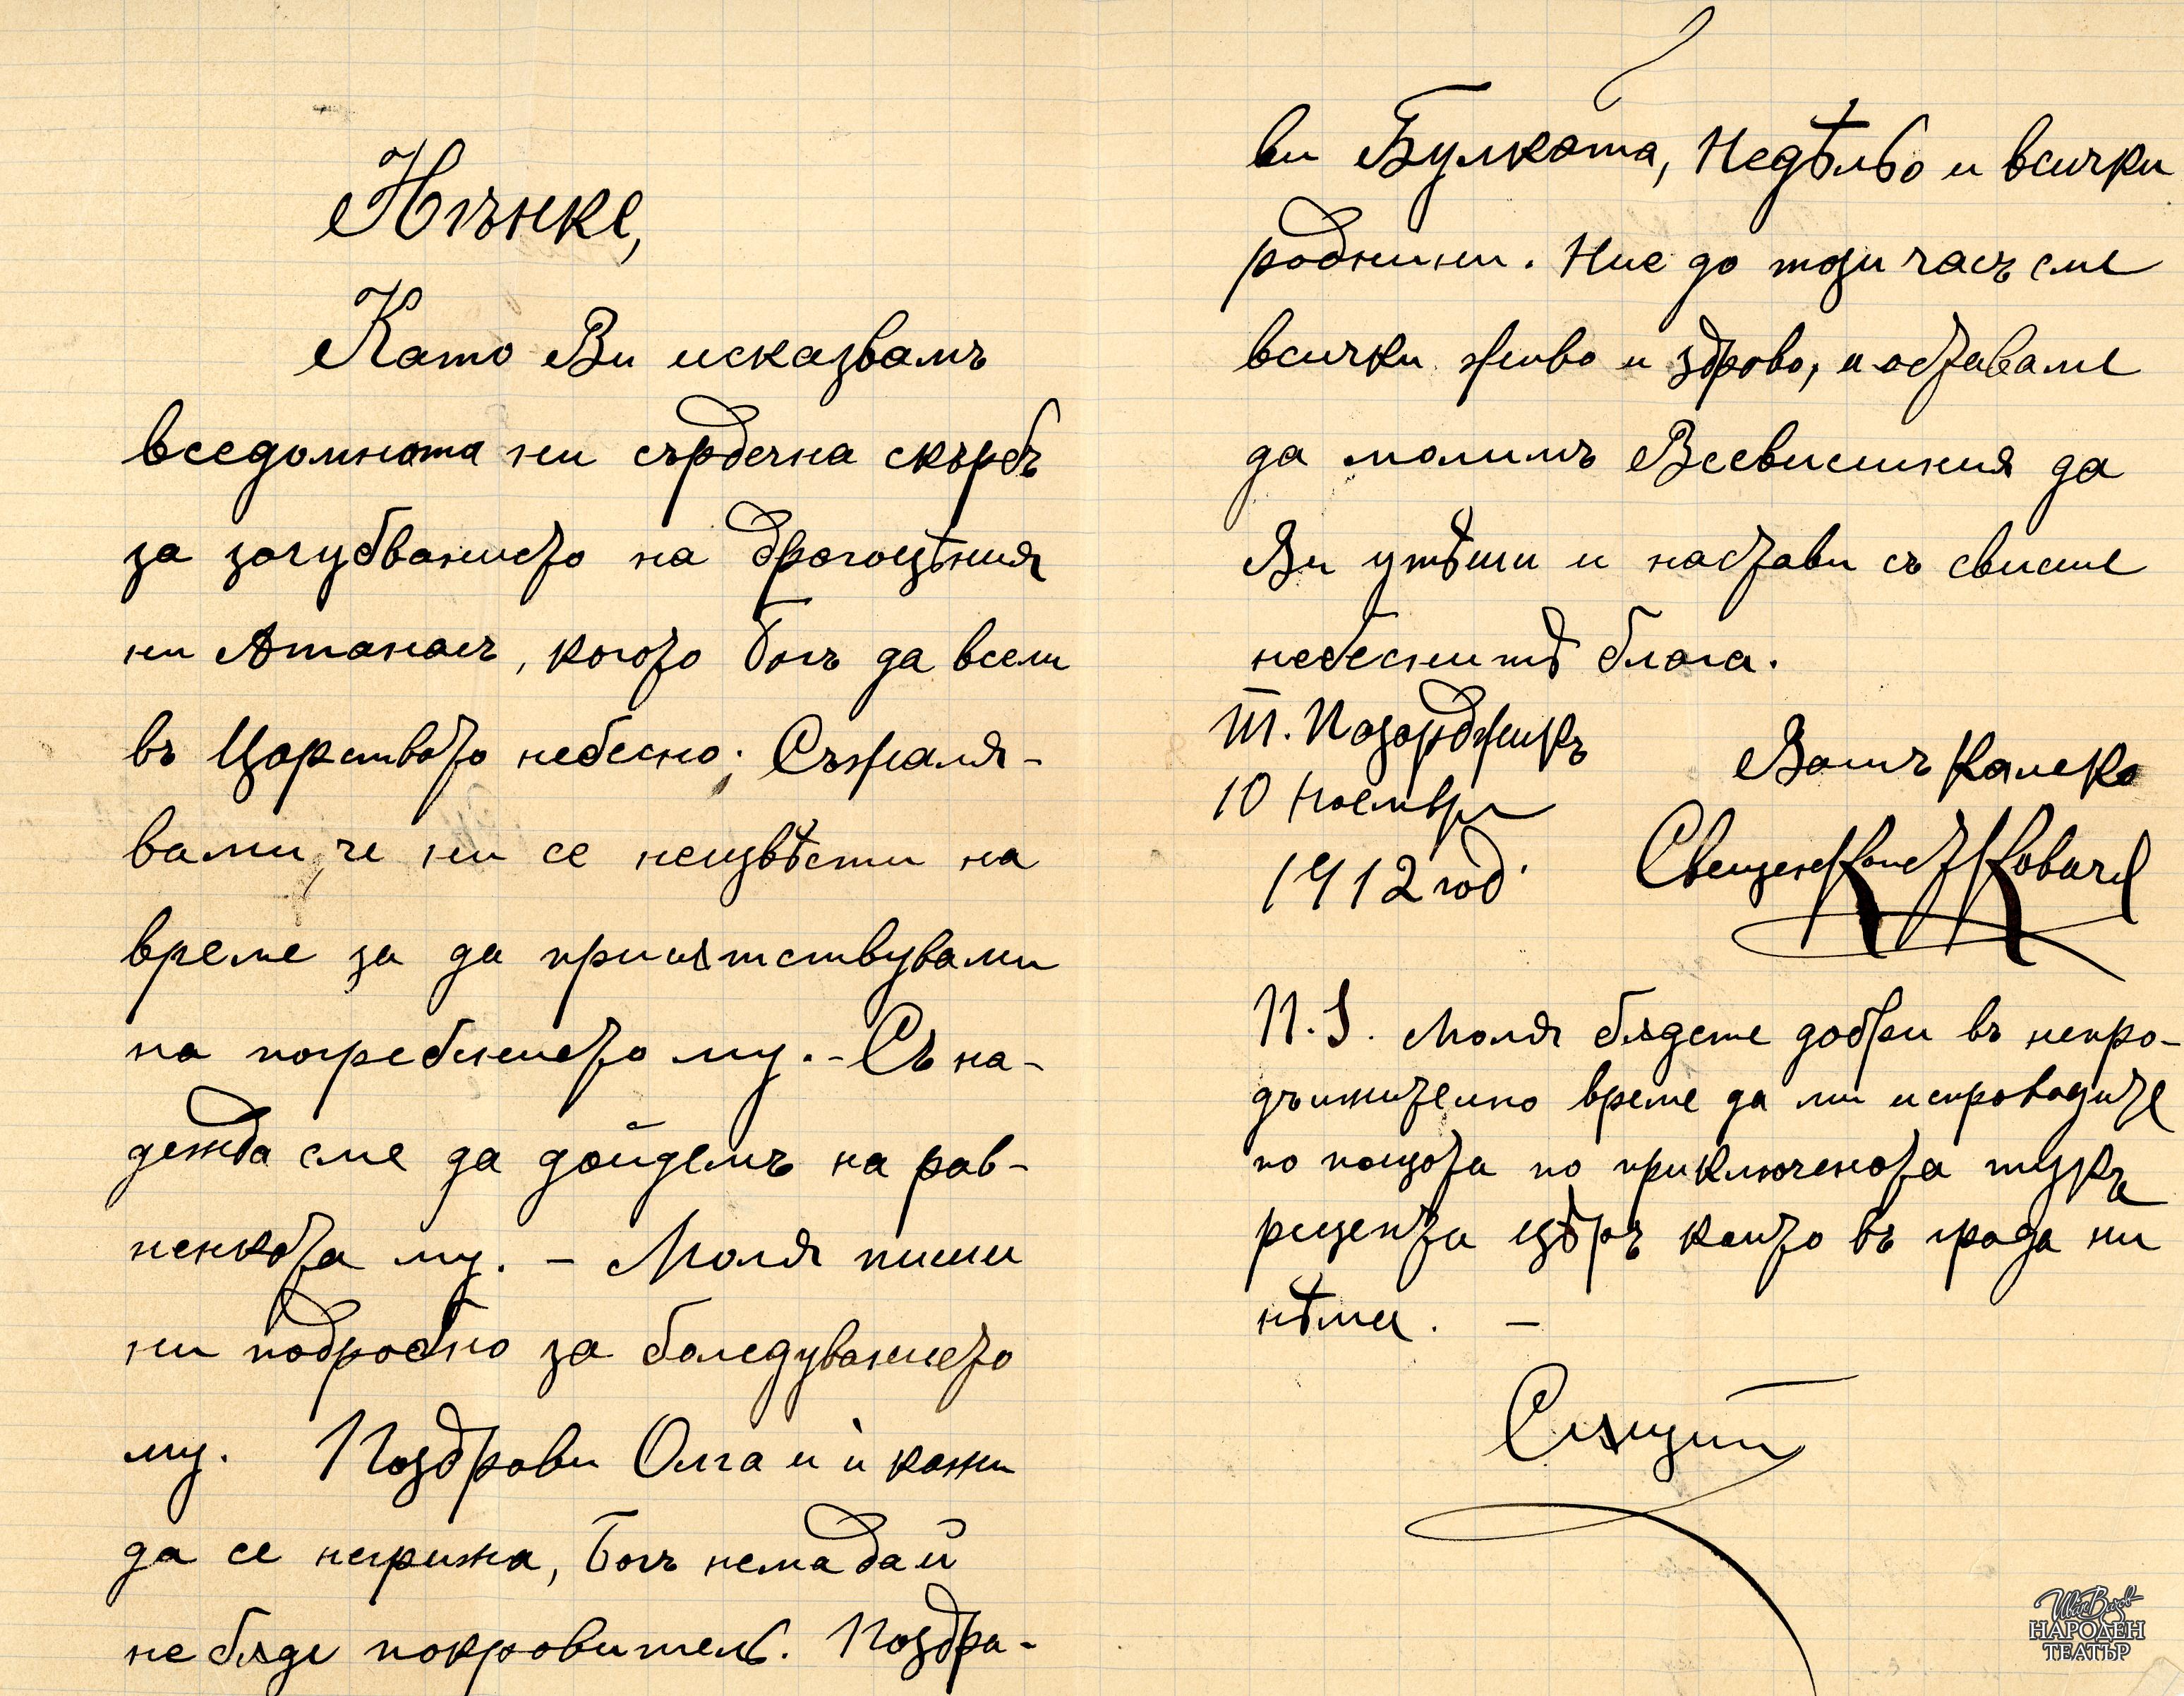 Нѣнке,
Като Ви исказвамъ
вседомната ни сърдечна скърбь
за загубванието на драгоцѣния
ни Атанасъ, когото Богъ да всели
въ Царството небесно. Съжаля-
вами, че ни се неизвѣсти на
време за да присѫтствувами
на погребението му. - Съ на-
дежда сме да дойдемъ на рав-
ненката му. - Моля пиши
ни подробно за боледуванието
му. Поздрави Олга и ѝ кажи
да се негрижа, Богъ нема да й
не бѫде покровитель. Поздра-
ви Булката, Недѣльо и всички
роднини. Ние до този часъ сме
всички живо и здраво, и оставаме
да молимъ Всевишния да
Ви утѣши и настави съ свише
небеснитѣ блага.
Т. Пазарджикъ
10 Ноември
1912 год.
Вашъ Калеко
Свещен Конст Ковачев
П.S. Моля бѫдете добри въ непро-
дължително време да ми испроводите
по пощата по приключената тукъ
рецепта цѣръ които въ града ни
нѣма. -
Сѫщий
Иван Вазов
НАРОДЕН
ТЕАТЪР